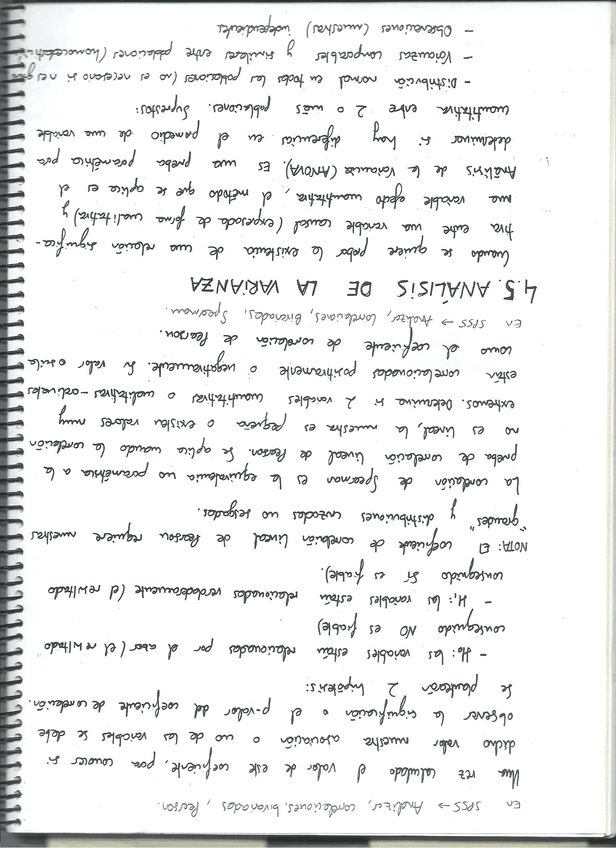 En SPSS → Analizar, correlaciones, bivariadas, Pearson.
Una vez calculado el valor de este coeficiente, para conocer si
dicho valor muestra asociación o no de las variables se debe
observar la significación o el p-valor del coeficiente de correlación.
Se plantearán 2 hipótesis:
- H0: las variables están relacionadas por el azar (el resultado
conseguido NO es fiable)
- H1: las variables están relacionadas verdaderamente (el resultado
conseguido SÍ es fiable).
NOTA: El coeficiente de correlación lineal de Pearson requiere muestras
"grandes" y distribuciones no sesgadas.
La correlación de Spearman es la equivalencia no paramétrica a la
prueba de correlación lineal de Pearson. Se aplica cuando la correlación
no es lineal, la muestra es pequeña o existen valores muy
extremos. Determina si 2 variables cuantitativas o cualitativas-ordinales
están correlacionadas positivamente o negativamente. Su valor oscila
como el coeficiente de correlación de Pearson.
En SPSS → Analizar, Correlaciones, Bivariadas, Spearman.
4.5. ANÁLISIS DE LA VARIANZA
Cuando se quiere probar la existencia de una relación significa-
tiva entre una variable causal (expresada de forma cualitativa) y
una variable efecto cuantitativa, el método que se aplica es el
Análisis de la Varianza (ANOVA). Es una prueba paramétrica para
determinar si hay diferencias en el promedio de una variable
cuantitativa entre 2 o más poblaciones. Supuestos:
- Distribución normal en todas las poblaciones (no es necesario si n es
- Varianzas comparables y similares entre poblaciones
- Observaciones (muestras) independientes